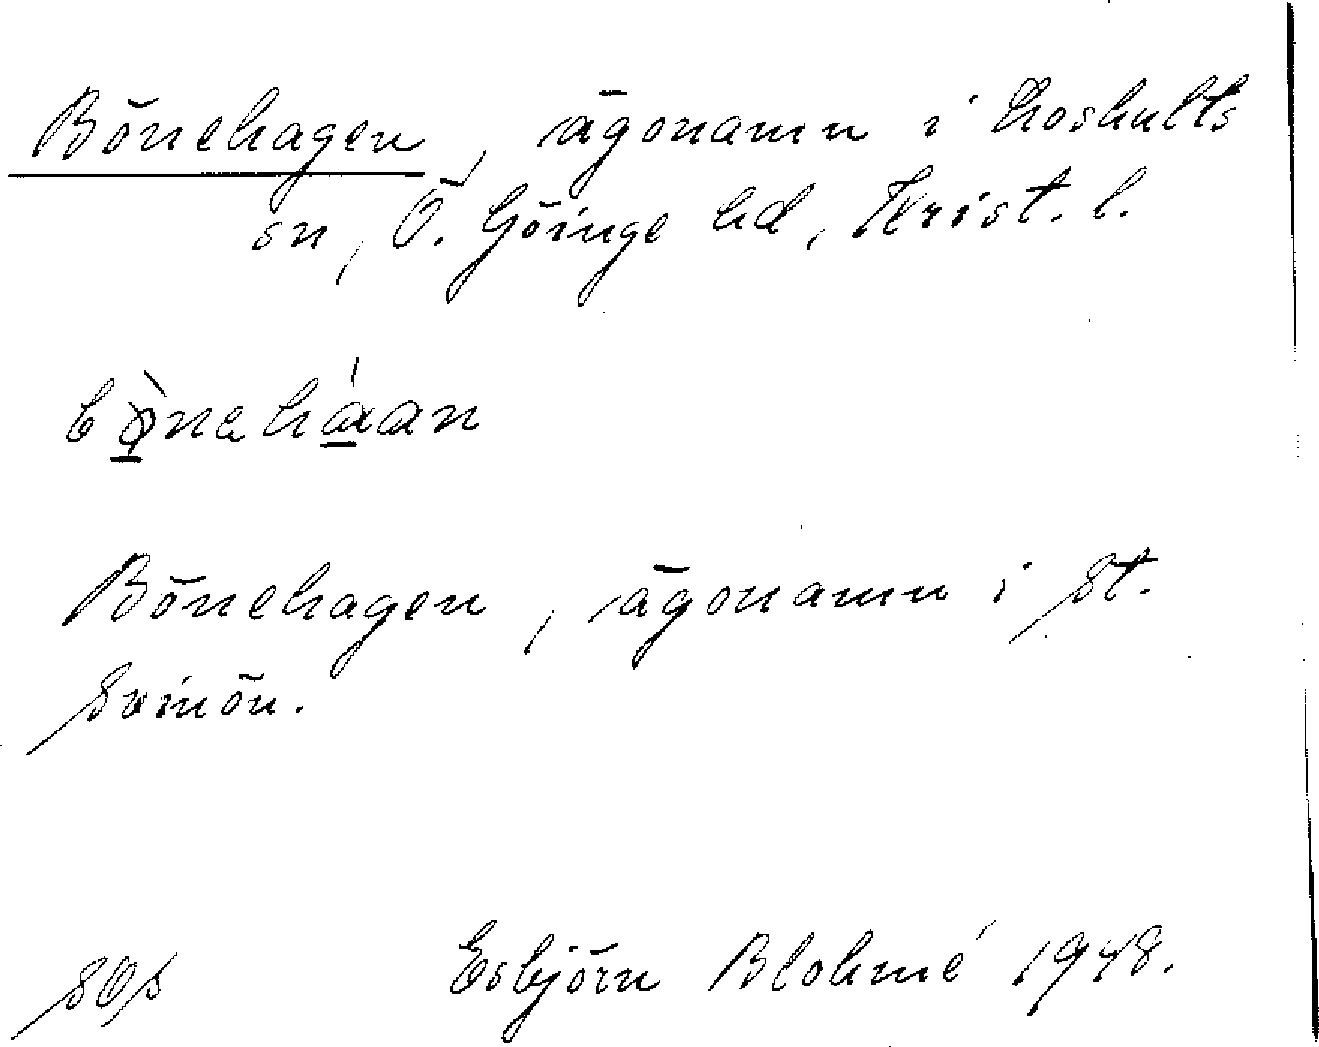 Bönehagen, ägonamn i Loshults
sn, Ö. Göinge hd, Krist. l.
Bönehagen, ägonamn i St.
Svinön.
Esbjörn Blohmé 1948.